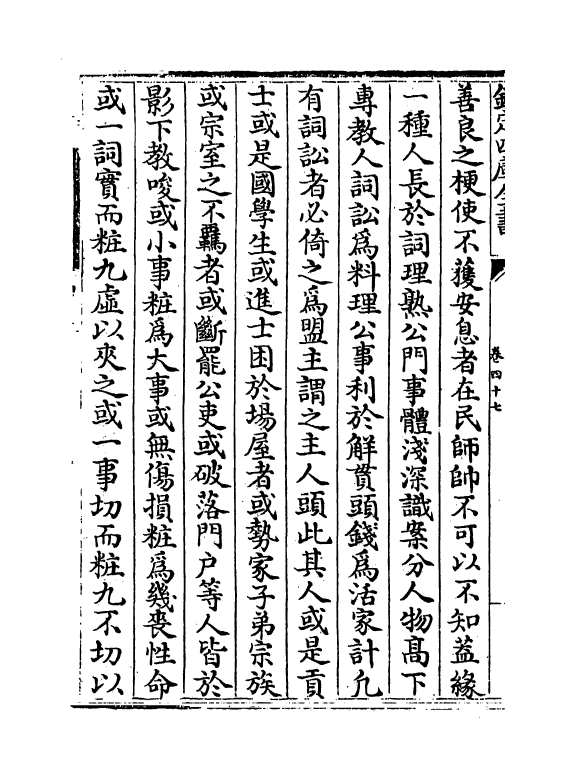 欽定四庫全書
卷四十七
善良之梗使不獲安息者在民師帥不可以不知葢緣
一種人長於詞理熟公門事體淺深識案分人物髙下
專教人詞訟爲料理公事利於解貫頭錢爲活家計凢
有詞訟者必倚之爲盟主謂之主人頭此其人或是貢
士或是國學生或進士困於場屋者或勢家子弟宗族
或宗室之不羈者或斷罷公吏或破落門戸等人皆於
影下教唆或小事粧爲大事或無傷損粧爲㡬喪性命
或一詞實而粧九虛以夾之或一事切而粧九不切以